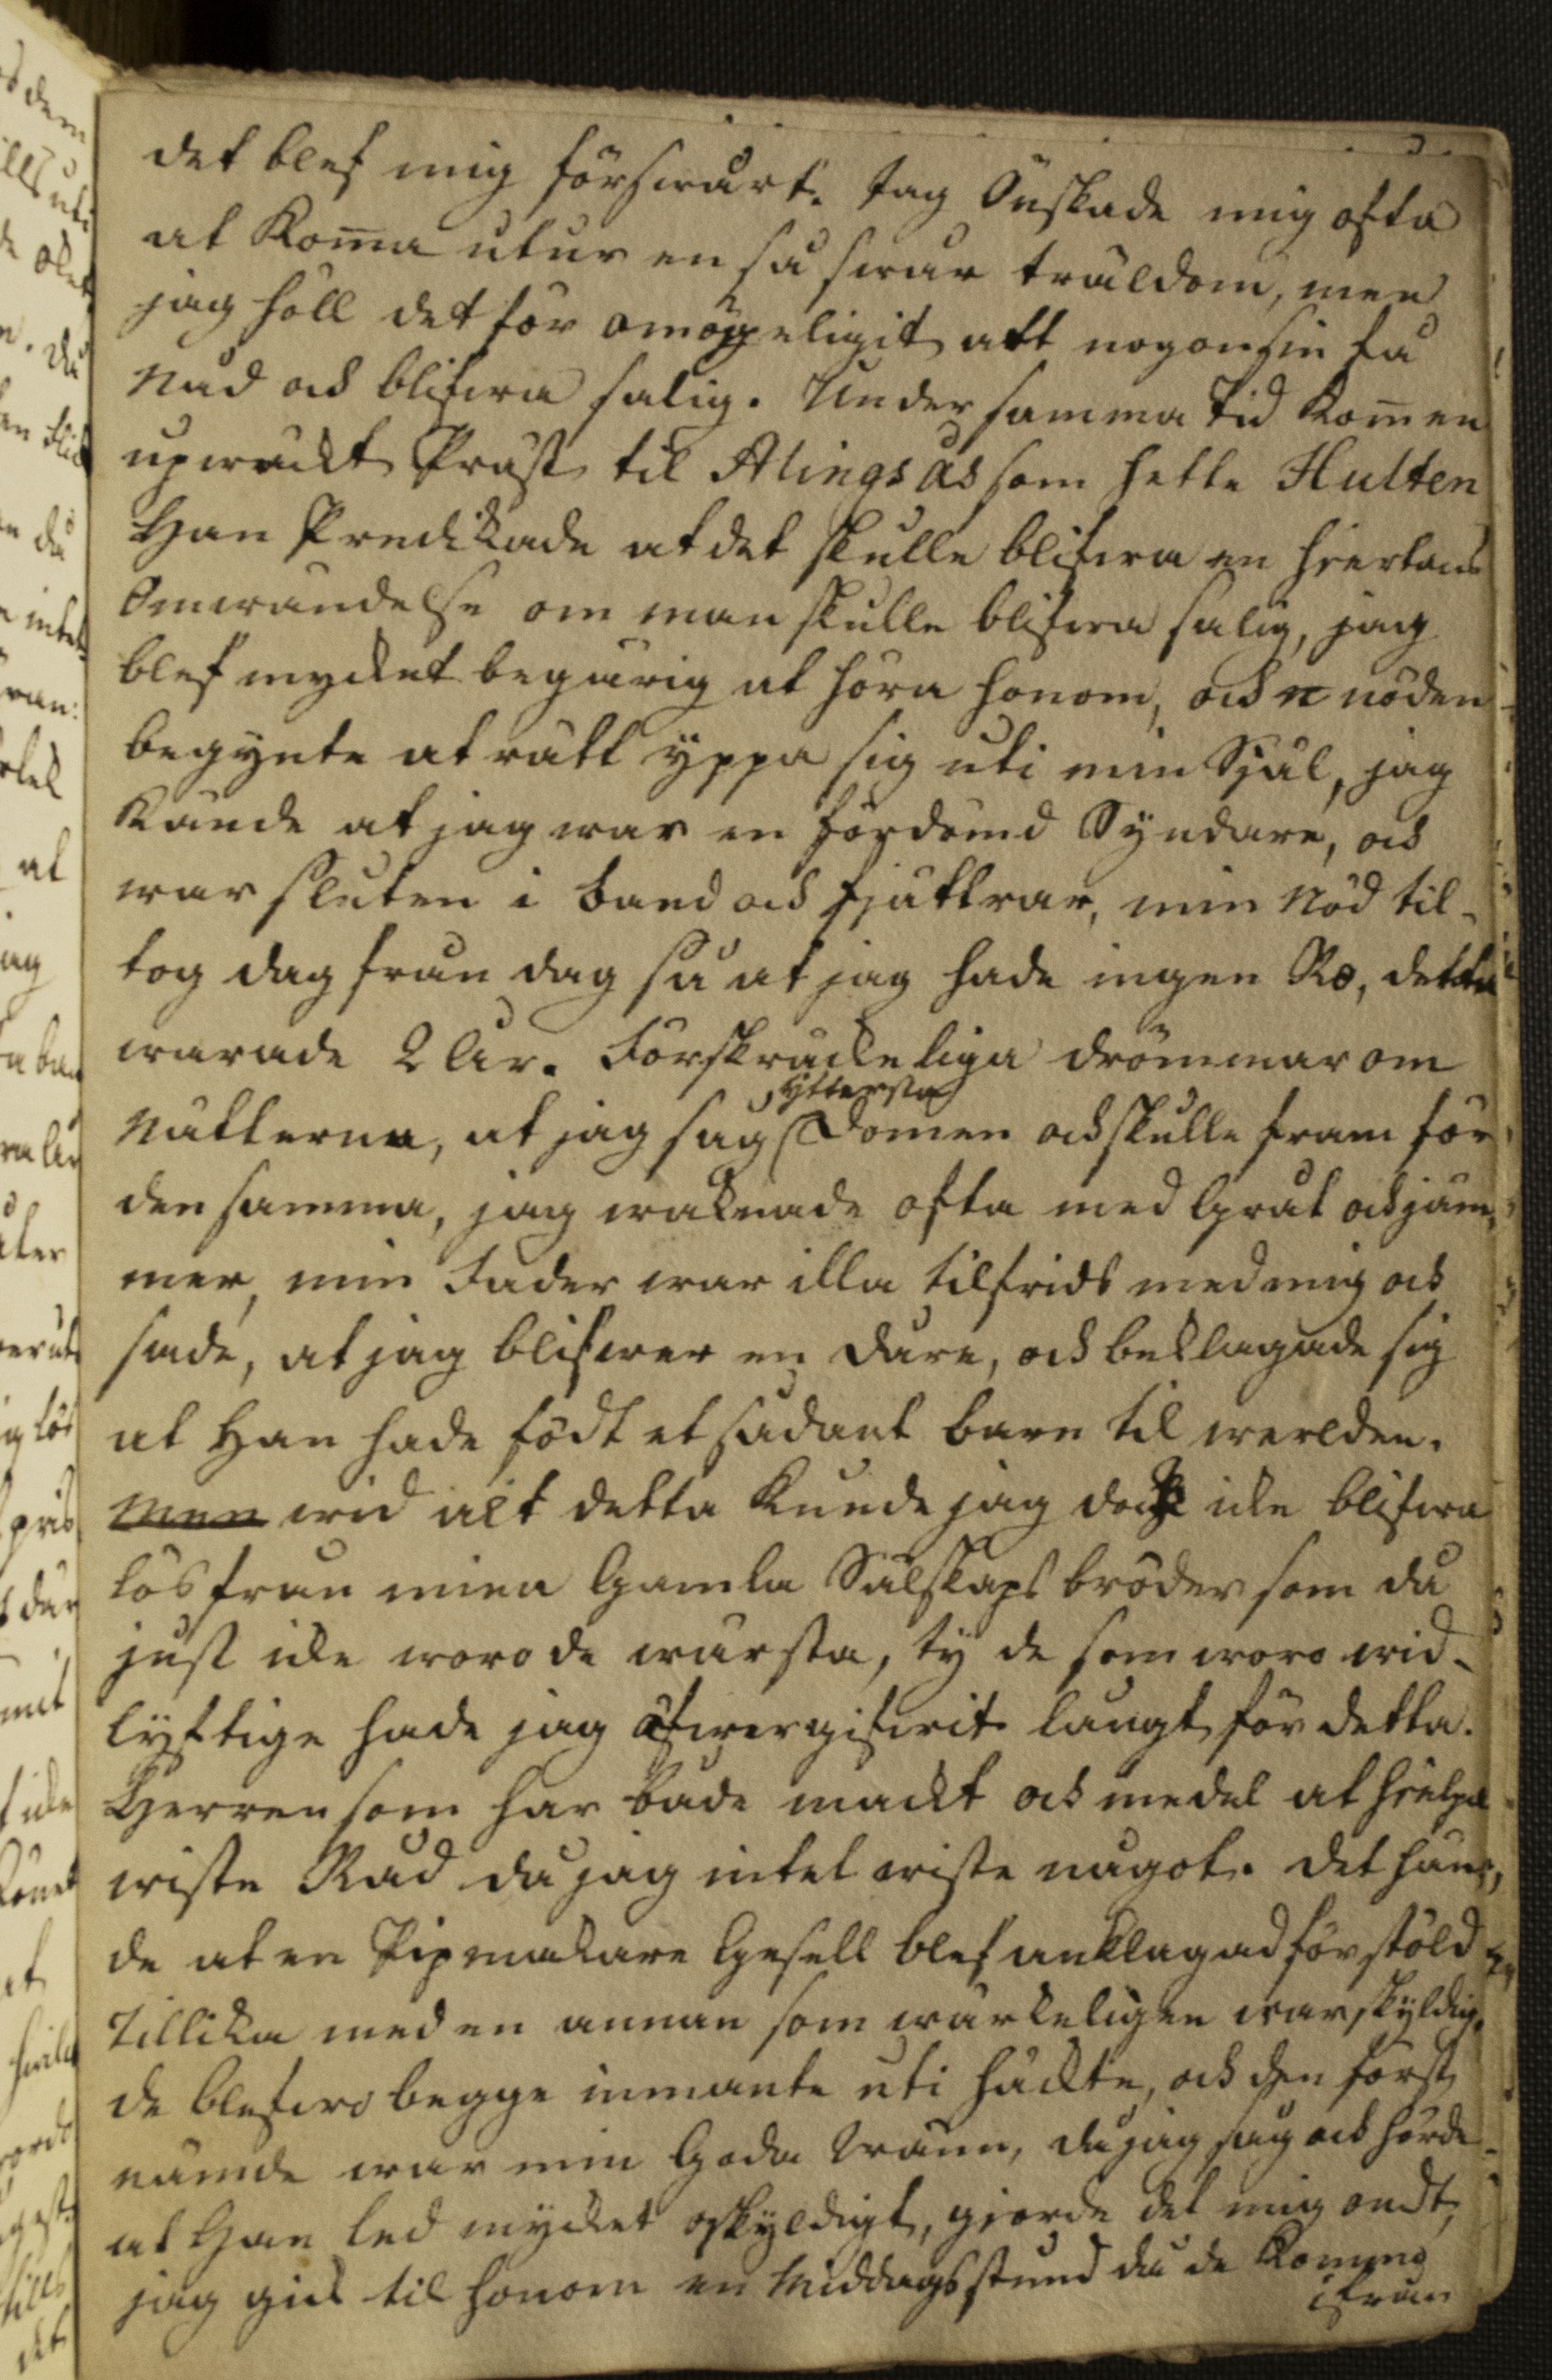 det blef mig försvårt. Jag Önskade mig ofta
at Kom̅a utur en så svår träldom, men
jag höll det för omöÿeligit att nogonsin få
Nåd och blifwa salig. Under samma tid Kom̅ en
upwäckt Präst til Alingsås som hette Hulten
Han Predikade at det skulle blifwa en hiertans
Omwändelse om man skulle blifwa salig, jag
blef mycket begärig at höra honom, och n nöden
begynte at rätt yppa sig uti min Själ, jag
Kände at jag war en fördömd Syndare, och
war sluten i band och fjättrar, min Nöd til-
tog dag från dag så at jag hade ingen Ro, detta
warade 2 År. Förskräckeliga drömmar om
Nätterna, at jag såg yttersta Domen och skulle fram för
den samma, jag waknade ofta med Gråt och jäm-
mer, min Fader war illa tilfrids med mig och
sade, at jag blifwer en dåre, och beklagade sig
at Han hade födt et sådant barn til werlden.
Men wid alt detta Kunde jag dock icke blifwa
lös från mina Gamla Sälskaps bröder som då
just icke woro de wärsta, ty de som woro wid-
lyftige hade jag öfwergifwit långt för detta.
Herren som har både mackt och medel at hielpa
wiste Råd då jag intet wiste något. det hän-
de at en Pipmakare Gesell blef anklagad för stöld
Tillika med en annan som wärkeligen war skyldig,
de blefwo begge inmante uti häckte, och den först
nämde war min Goda Wänn, då jag såg och hörde
at Han led mycket oskyldigt, gjorde det mig ondt,
jag gick til honom en Middagsstund då de Kommo
ifrån